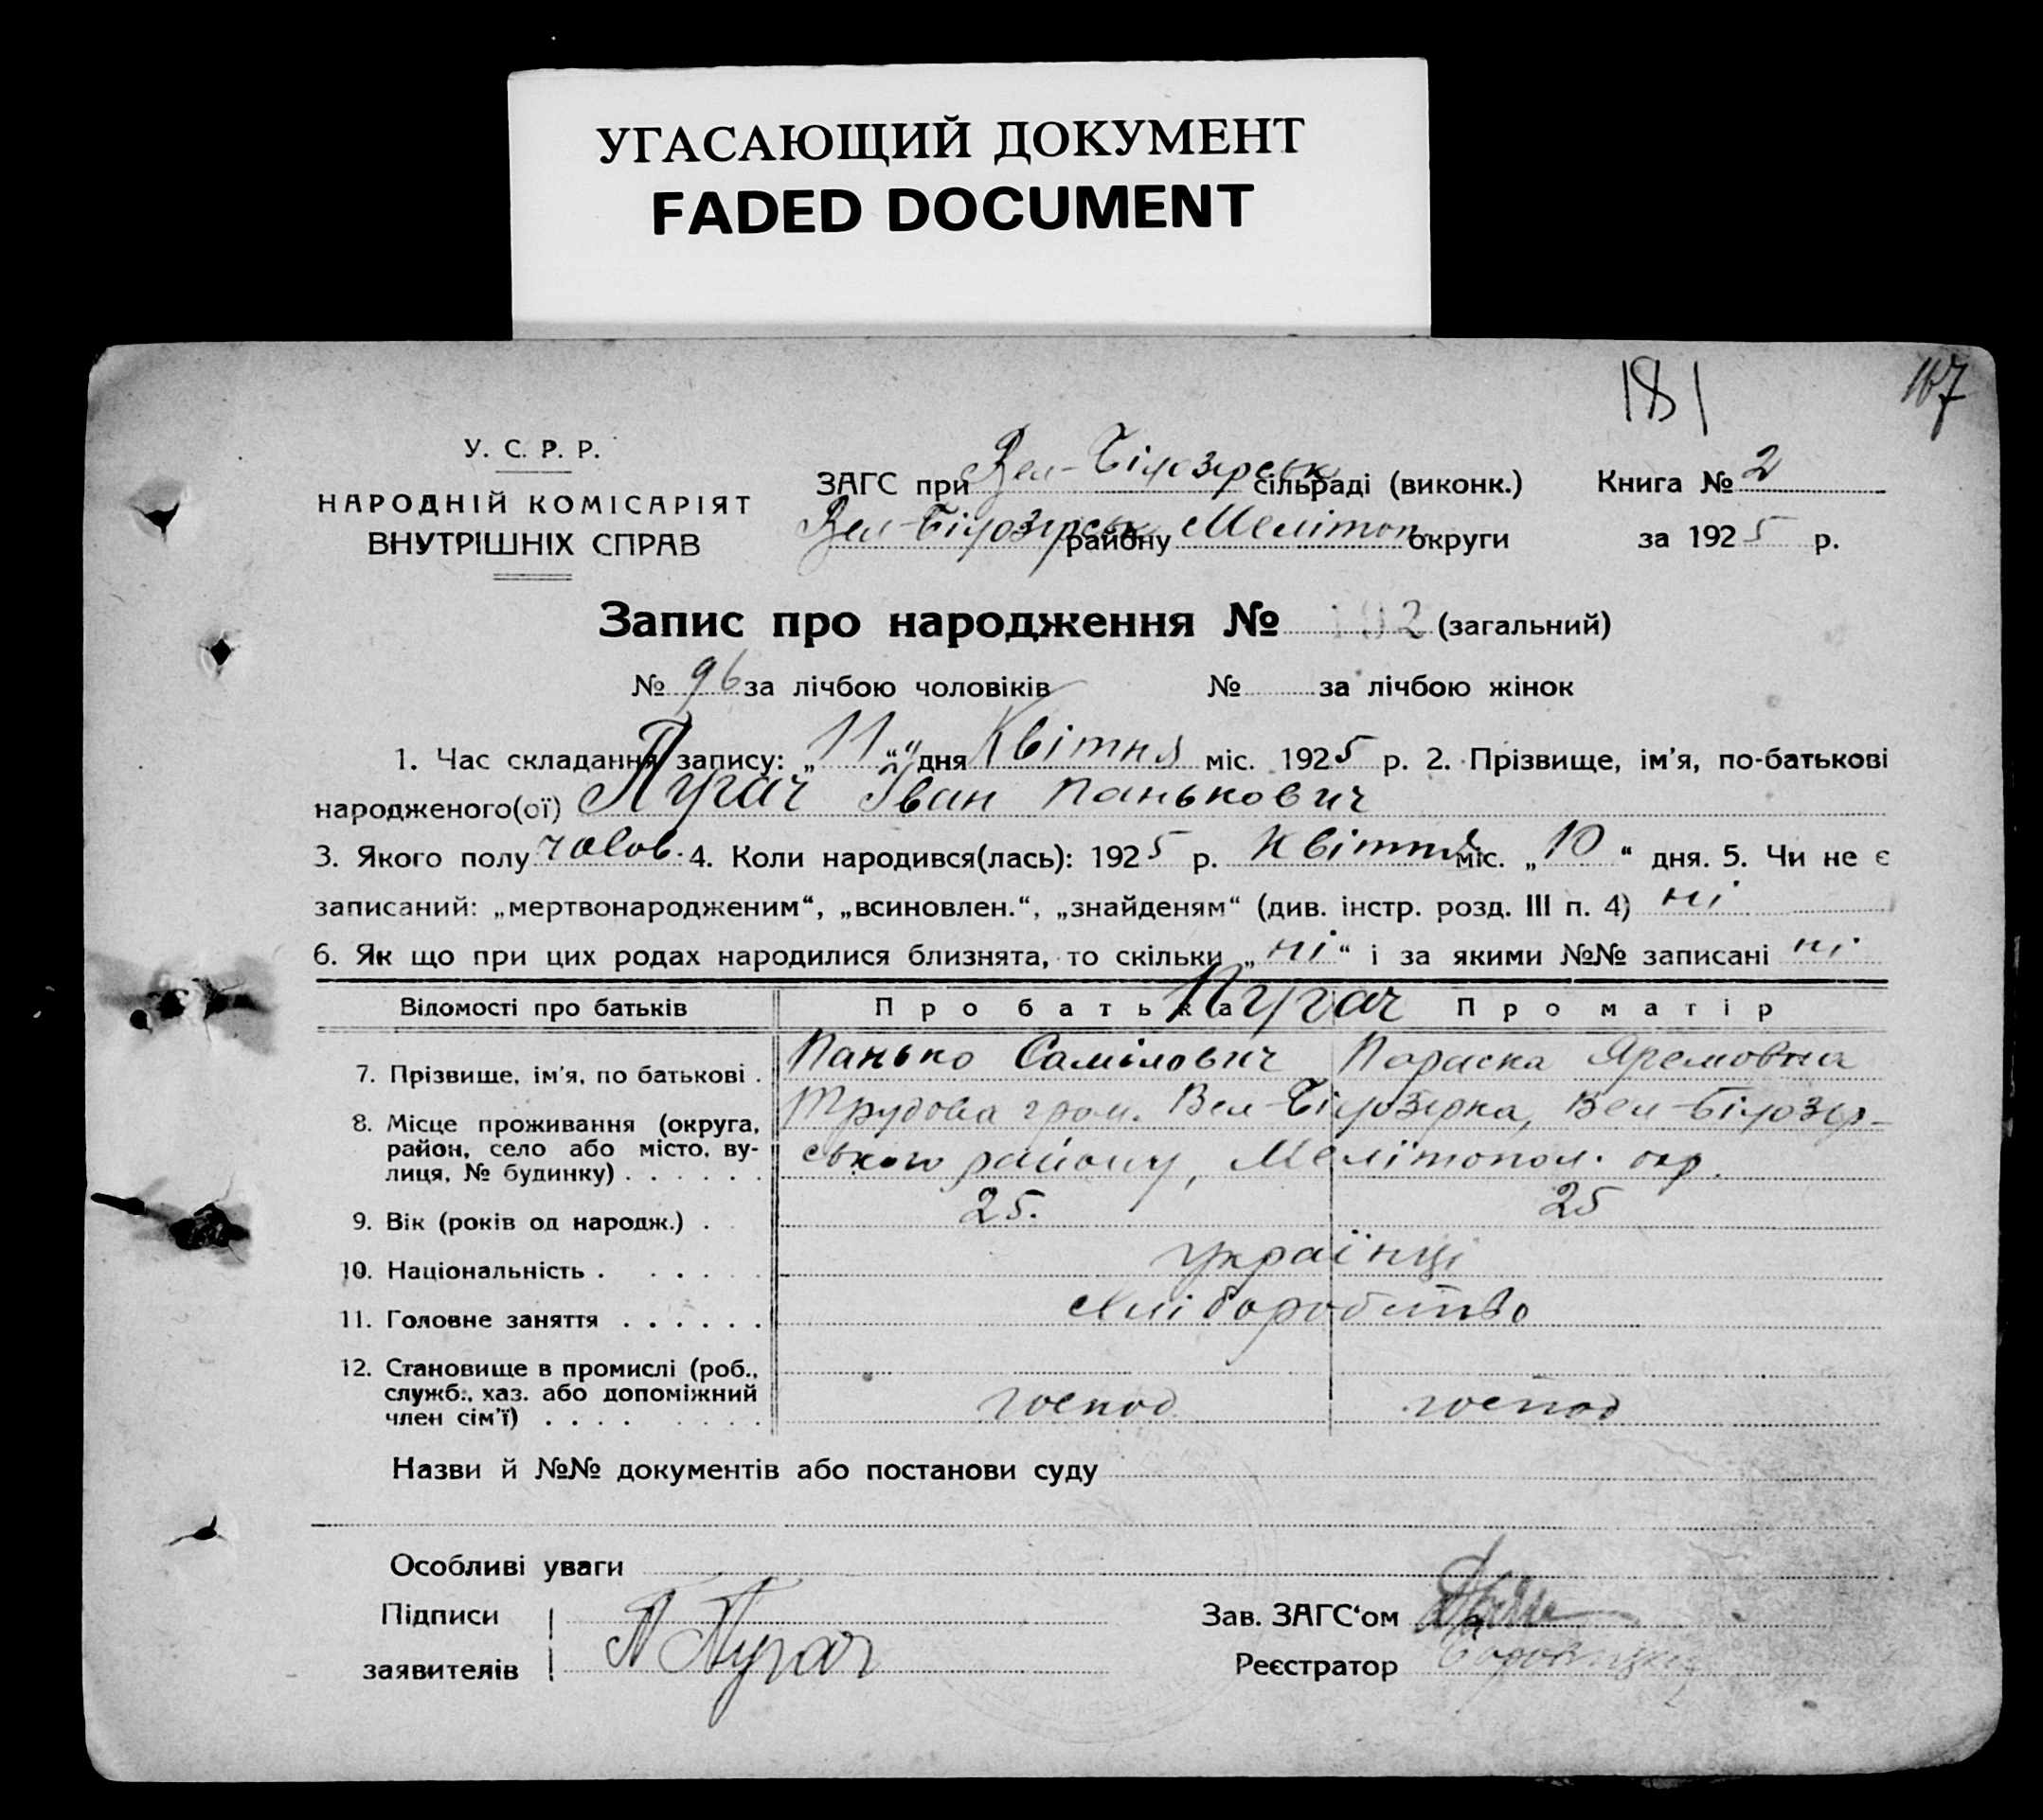 УГАСАЮЩИЙ ДОКУМЕНТ
FADED DOCUMENT
181
167
У. С. Р. Р.
НАРОДНІЙ КОМІСАРІЯТ
ВНУТРІШНІХ СПРАВ
ЗАГС при Вел-Білозірськ сільраді (виконк.)
Вел-Білозірськ району Мелітоп. округи
Книга № 2
за 1925 р.
Запис про народження № 192 (загальний)
№ 96 за лічбою чоловіків № за лічбою жінок
1. Час складання запису: „ 11 “ дня Квітня міс. 1925 р. 2. Прізвище, ім'я, по-батькові
народженого(ої) Пугач Іван Панькович
3. Якого полу чолов. 4. Коли народився(лась): 1925 р. Квітня міс. „ 10 “ дня. 5. Чи не є
записаний: „мертвонародженим“, „всиновлен.“, „знайденям“ (див. інстр. розд. III п. 4) ні
6. Як що при цих родах народилися близнята, то скільки „ ні “ і за якими №№ записані ні
Відомості про батьків Про батька Про матір
Пугач
7. Прізвище, ім'я, по батькові . Панько Самілович Параска Яремовна
8. Місце проживання (округа, район, село або місто, вулиця, № будинку) . . . . . . Трудова гром. Вел-Білозірка, Вел-Білозір-
ського району, Мелітопол. окр.
9. Вік (років од народж.) . 25. 25
10. Національність . . . . . українці
11. Головне заняття . . . . . . хліборобство
12. Становище в промислі (роб.,
служб., хаз. або допоміжний
член сім'ї) . . . . господ господ
Назви й №№ документів або постанови суду
Особливі уваги
Підписи
заявителів
П Пугач
Зав. ЗАГС'ом
Реєстратор